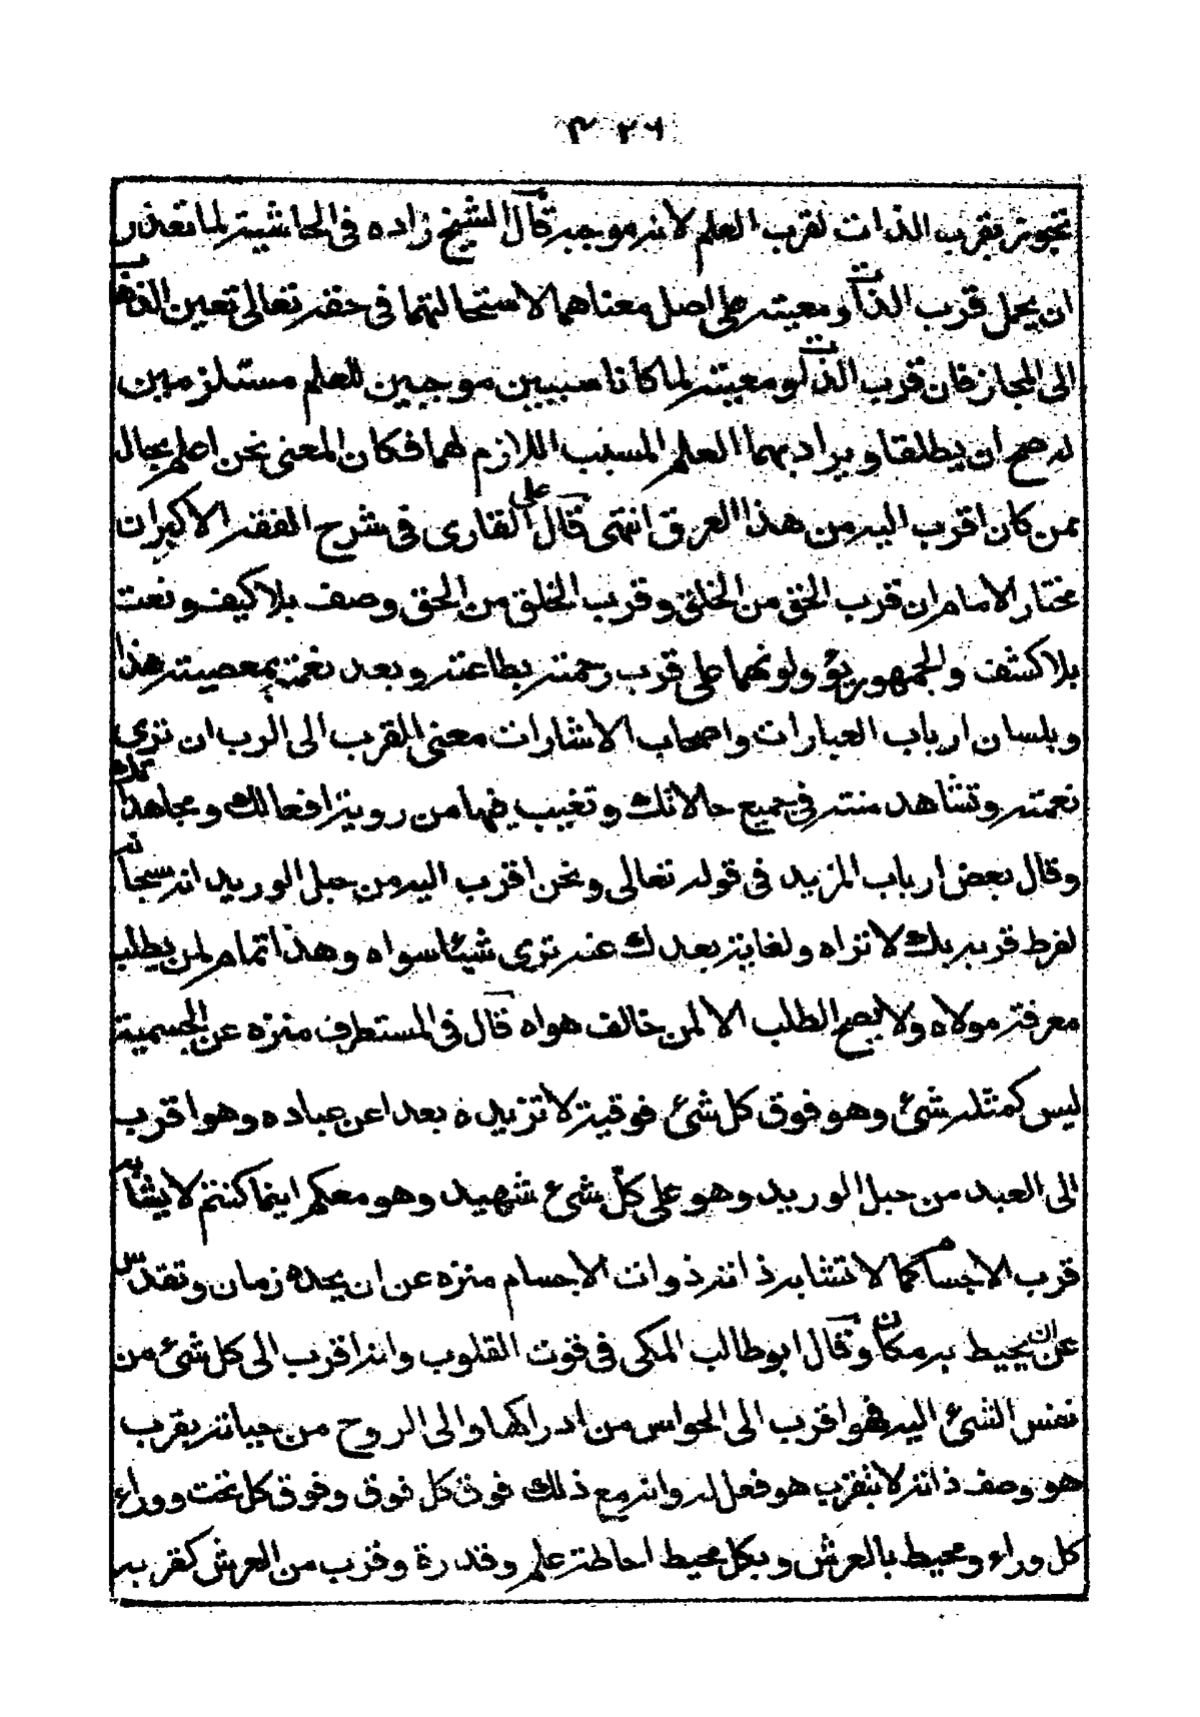 ٣٢٦
تجوز بقرب الذات لقرب العلم لانه موجبه قال الشيخ زاده فى الحاشية لما تعذر
ان يحمل قرب الذات ومعيته على اصل معناهما لاستحالتهما فى حقه تعالى تعين الذهاب
الى المجاز فان قرب الذات ومعيته لما كانا سببين موجبين للعلم مستلزمين
له صح ان يطلقا ويراد بهما العلم المسبب اللازم لهما فكان المعنى نحن اعلم بحال
ممن كان اقرب اليه من هذا العرق انتهى قال على القارى فى شرح الفقه الاكبر ان
مختار الامام ان قرب الحق من الخلق وقرب الخلق من الحق وصف بلا كيف ونعت
بلا كشف والجمهور يؤولونهما على قرب رحمته بطاعته وبعد نعمته بمعصيته هذا
وبلسان ارباب العبارات واصحاب الاشارات معنى القرب الى الرب ان ترى
نعمته وتشاهد منته فى جميع حالاتك وتغيب فيها من روية افعالك ومجاهداتك
وقال بعض ارباب المزيد فى قوله تعالى ونحن اقرب اليه من حبل الوريد انه سبحانه
لفرط قربه بك لا تراه ولغاية بعدك عنه ترى شيئا سواه وهذا تمام لمن يطلب
معرفة مولاه ولا يصح الطلب الا لمن خالف هواه قال فى المستطرف منزه عن الجسمية
ليس كمثله شئ وهو فوق كل شئ فوقية لا تزيده بعدا عن عباده وهو اقرب
الى العبد من حبل الوريد وهو على كل شئ شهيد وهو معكم اينما كنتم لا يشابه
قرب الاجسام كما لا تشابه ذاته ذوات الاجسام منزه عن ان يحده زمان وتقدس
عن ان يحيط به مكان وقال ابو طالب المكى فى قوت القلوب وانه اقرب الى كل شئ من
نفس الشئ اليه فهو اقرب الى الحواس من ادراكها والى الروح من حياته بقرب
هو وصف ذاته لا بتقرب هو فعل له وانه مع ذلك فوق كل فوق وفوق كل تحت ووراء
كل وراء ومحيط بالعرش وبكل محيط احاطة علم وقدرة وقرب من العرش كقربه